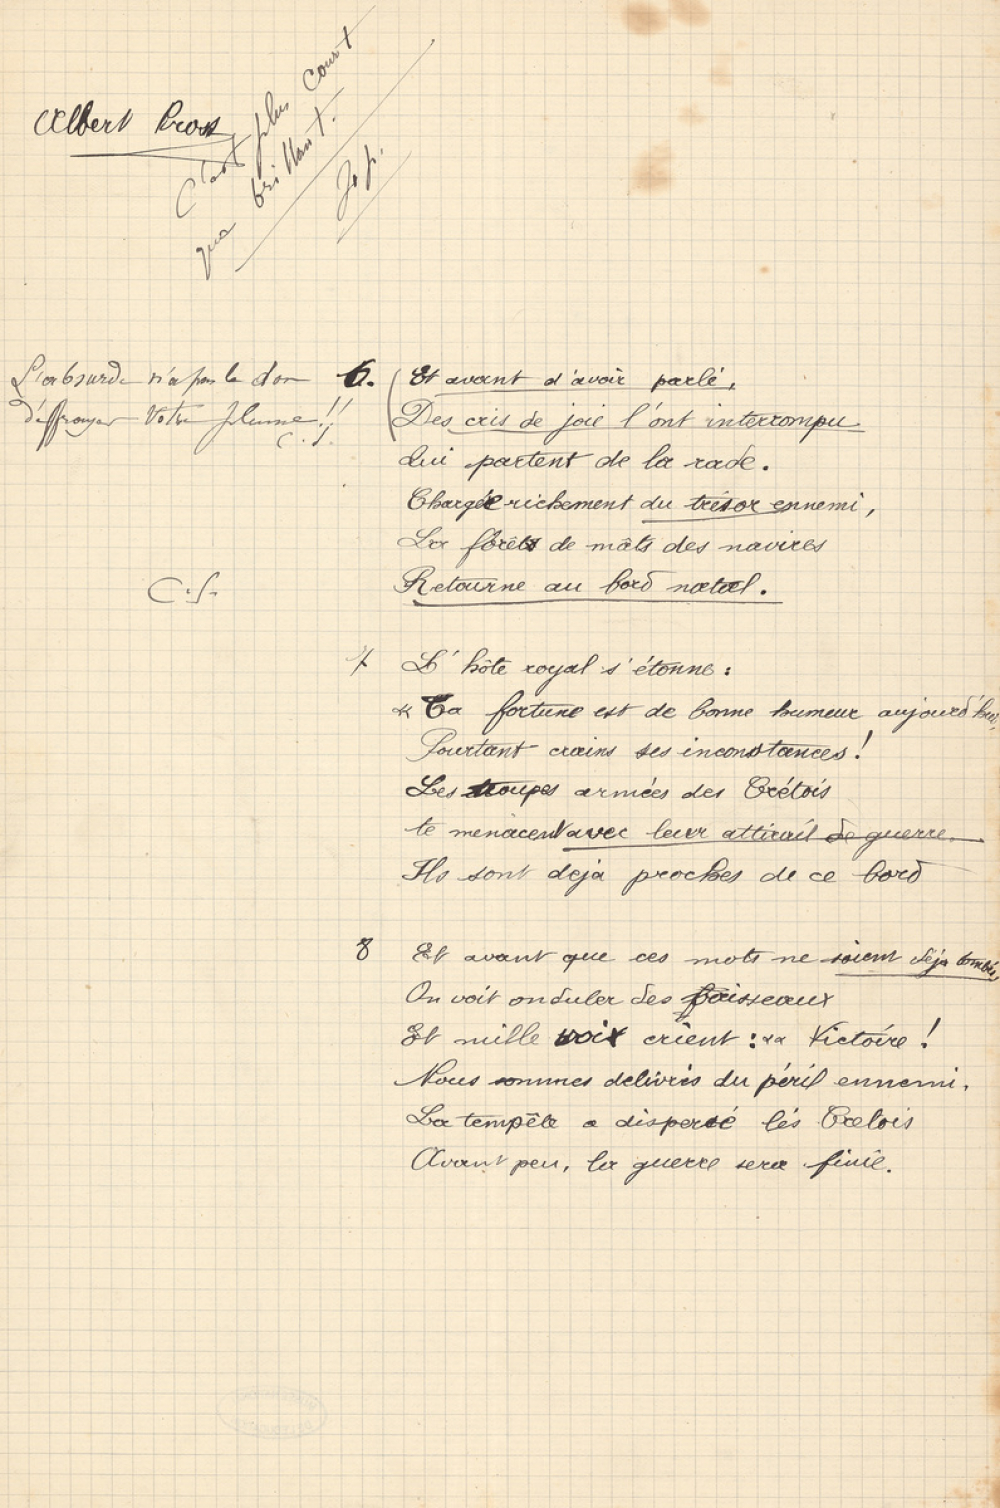 Albert Pross
C'est plus court
que brillant.
L'absurde n'a pas le don
d'effrayer votre plume!!
C.S.
6. Et avant d'avoir parlé,
Des cris de joie l'ont interrompu
Qui partent de la rade.
Chargée richement du trésor ennemi,
La forêt de mâts des navires
Retourne au bord natal.
C.S.
7 L'hôte royal s'étonne:
« Ta fortune est de bonne humeur aujourd'hui,
Pourtant crains ses inconstances!
Les troupes armées des Crétois
te menacent avec leur attirail de guerre.
Ils sont deja proches de ce bord
8 Et avant que ces mots ne soient déja tombés,
On voit onduler des vaisseaux
Et mille voix crient: «« Victoire!
Nous sommes delivrés du péril ennemi,
La tempête a dispersé lés Crétois
Avant peu, la guerre sera finie.